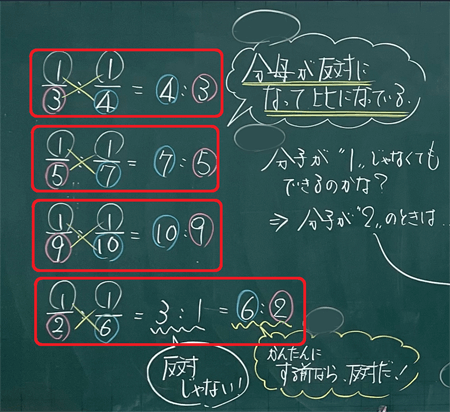 1/3 × 1/4 = 4:3
1/5 × 1/7 = 7:5
1/9 × 1/10 = 10:9
1/2 × 1/6 = 3:1 = 6:2
分母が反対に
なって比になっている.
分子が"1"じゃなくても
できるのかな?
⇒ 分子が"2"のときは...
反対
じゃない!
かんたんに
する前なら、反対だ!